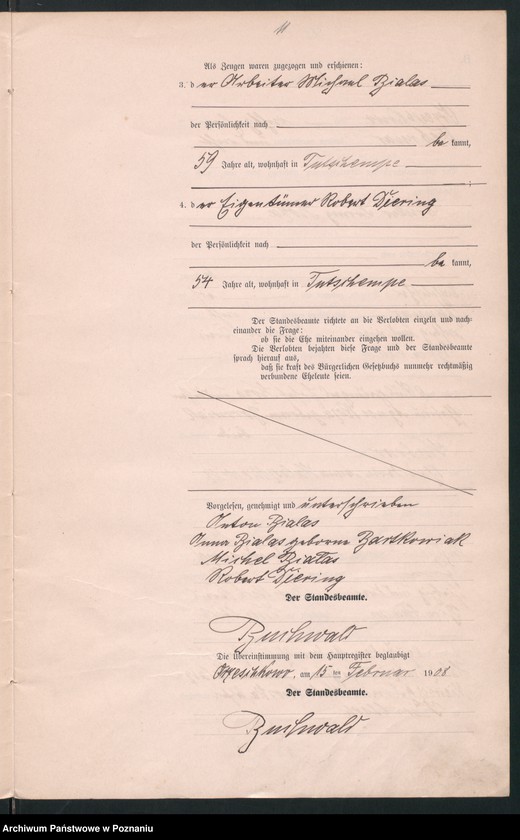 11
Als Zeugen waren zugezogen und erschienen:
3. der Arbeiter Michael Bialas
der Persönlichkeit nach
be kannt,
59 Jahre alt, wohnhaft in Tutschempe
4. der Eigentümer Robert Diering
der Persönlichkeit nach
be kannt,
54 Jahre alt, wohnhaft in Tutschempe
Der Standesbeamte richtete an die Verlobten einzeln und nach-
einander die Frage:
ob sie die Ehe miteinander eingehen wollen.
Die Verlobten bejahten diese Frage und der Standesbeamte
sprach hierauf aus,
daß sie kraft des Bürgerlichen Gesetzbuchs nunmehr rechtmäßig
verbundene Eheleute seien.
Vorgelesen, genehmigt und unterschrieben
Anton Bialas
Anna Bialas geborne Bartkowiak
Michel Bialas
Robert Diering
Der Standesbeamte.
Buchwald
Die Übereinstimmung mit dem Hauptregister beglaubigt
am 15 ten Februar 1908
Der Standesbeamte.
Buchwald
Archiwum Państwowe w Poznaniu